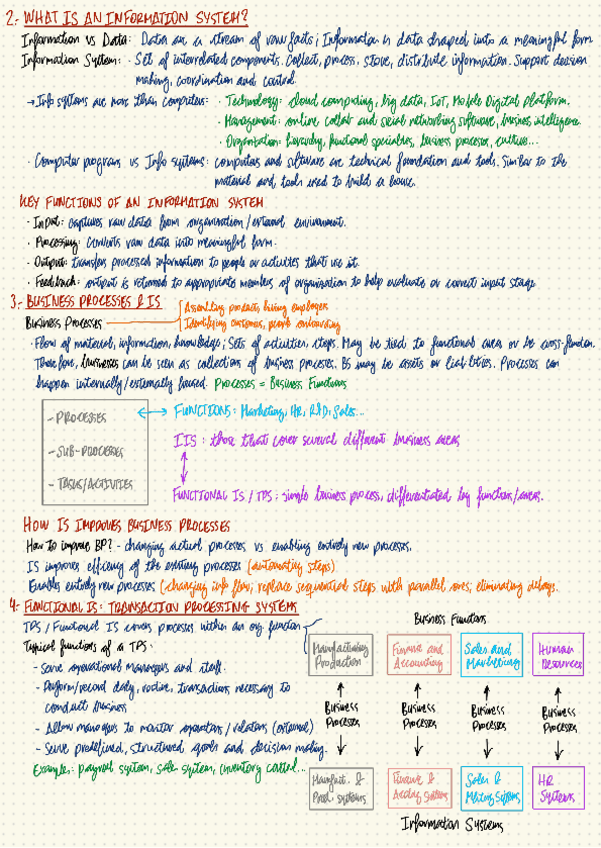 2.- WHAT IS AN INFORMATION SYSTEM?
Information vs Data: Data are a stream of raw facts; Information is data shaped into a meaningful form
Information System: - Set of interrelated components. Collect, process, store, distribute information. Support decision
making, coordination and control.
→ Info systems are more than computers: · Technology: cloud computing, big data, IoT, Mobile Digital Platform.
· Management: online collab and social networking software, business intelligence
· Organisation: hierarchy, functional specialties, business processes, culture...
· Computer programs vs Info systems: computers and software are technical foundation and tools. Similar to the
material and tools used to build a house.
KEY FUNCTIONS OF AN INFORMATION SYSTEM
· Input: captures raw data from organisation/external environment.
· Processing: converts raw data into meaningful form.
· Output: transfers processed information to people or activities that use it.
· Feedback: output is returned to appropriate members of organisation to help evaluate or correct input stage
3.- BUSINESS PROCESSES & IS
Assembling products, hiring employees
Business Processes
Identifying customers, people onboarding
· Flow of material, information, knowledge; Sets of activities, steps. May be tied to functional area or be cross-function.
Therefore, businesses can be seen as collections of business processes. BS may be assets or liabilities. Processes can
happen internally/externally focused. Processes = Business Functions
- PROCESSES
FUNCTIONS: Marketing, HR, R&D, Sales...
IIS: those that cover several different business areas
- SUB-PROCESSES
- TASKS/ACTIVITIES
FUNCTIONAL IS / TPS: single business process, differentiated by function/areas.
HOW IS IMPROVES BUSINESS PROCESSES
How to improve BP? - changing actual processes vs. enabling entirely new processes.
IS improves efficiency of the existing processes (automating steps)
Enables entirely new processes (changing info flow; replace sequential steps with parallel ones; eliminating delays.
4.- FUNCTIONAL IS: TRANSACTION PROCESSING SYSTEMS
Business Functions
TPS / Functional IS covers processes within an org function
Typical functions of a TPS:
Manufacturing Production
Finance and Accounting
Sales and Marketing
Human Resources
- Serve operational managers and staff.
- Perform/record daily, routine, transactions necessary to
conduct business
Business Processes
Business Processes
Business Processes
Business Processes
- Allow managers to monitor operations/relations (external)
- Serve predefined, structured goals and decision making.
Example: payroll system, sale system, inventory control...
Manufact. & Prod. systems
Finance & Acctng Systems
Sales & Mkting Systems
HR Systems
Information Systems